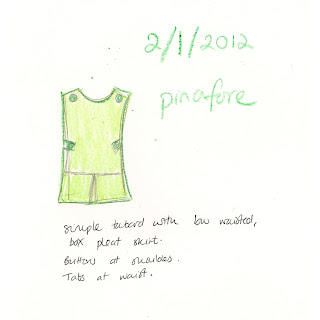 2/1/2012
pinafore
simple tabard with low waisted,
box pleat skirt.
Buttons at shoulders.
Tabs at waist.